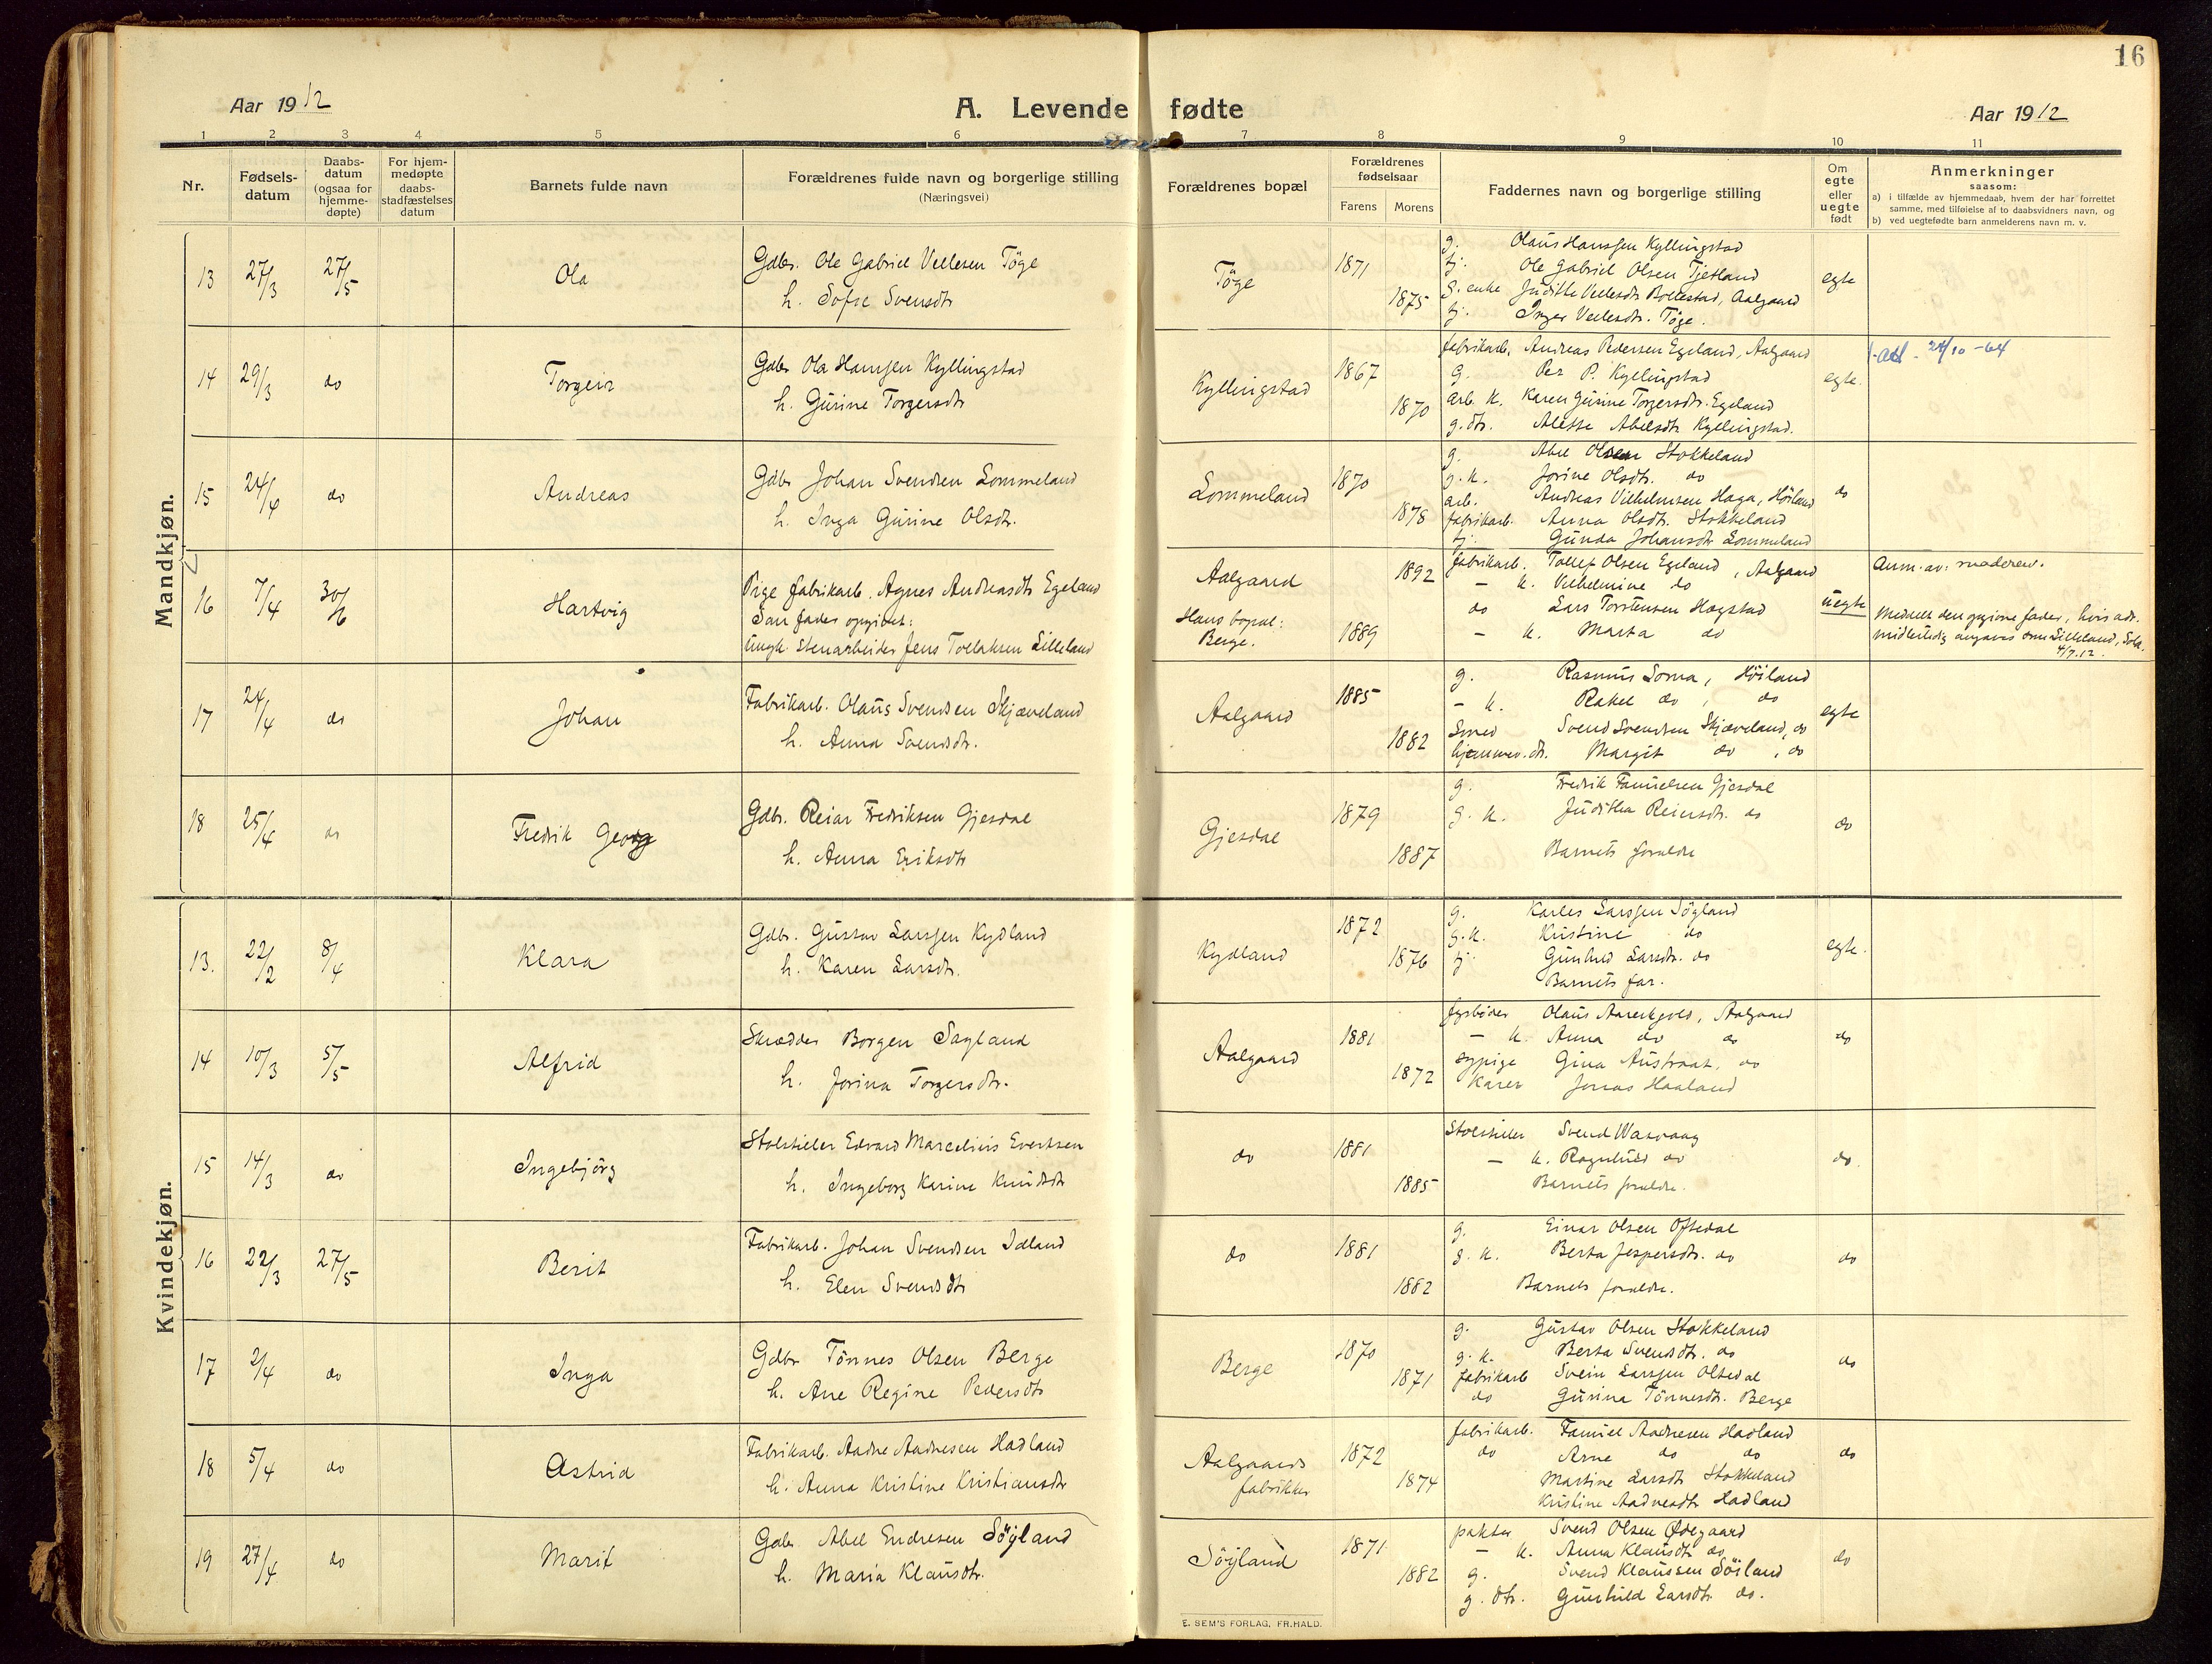 16
Aar 1912
A. Levende fødte
Aar 1912
1 2 3 4 5 6 7 8 9 10 11
Nr.
Fødsels-
datum
Daabs-
datum
(ogsaa for
hjemme-
døpte)
For hjem-
medøpte
daabs-
stadfæstelses
datum
Barnets fulde navn
Forældrenes fulde navn og borgerlige stilling
(Næringsvei)
Forældrenes bopæl
Forældrenes
fødselsaar
Farens Morens
Faddernes navn og borgerlige stilling
Om
egte
eller
uegte
født
Anmerkninger
saasom:
a) i tilfælde av hjemmedaab, hvem der har forrettet
samme, med tilføielse af to daabsvidners navn, og
b) ved uegtefødte barn anmelderens navn m. v.
Mandkjøn.
13 27/3 27/5 Ola
Gdbr. Ole Gabriel Vellesen Töge
h. Sofie Svensdtr
Töge 1871 1875
g. Olaus Hanssen Kyllingstad
tj. Ole Gabriel Olsen Tjetland
g. enke Juditte Vellesdtr Bollestad, Aalgaard
tj. Inger Vellesdtr. Töge.
egte
14 29/3 do Torgeir
Gdbr Ola Hanssen Kyllingstad
h. Gurine Torgersdtr
Kyllingstad 1867 1870
fabrikarb. Andreas Pedersen Egeland, Aalgaard
g. Per P. Kyllingstad
arb. k. Karen Gurine Torgersdtr. Egeland
g. dtr. Alette Abelsdtr Kyllingstad.
egte.
24/10-64
15 24/4 do Andreas
Gdbr Johan Svendsen Lommeland
h. Inga Gurine Olsdtr.
Lommeland 1870 1878
g. Abel Olsen Stokkeland
g. k. Jorine Olsdtr. do
arb. Andreas Vilhelmsen Haga, Höiland
fabrikarb. Anna Olsdtr. Stokkeland
tj. Gunda Johansdtr Lommeland
do
16 7/4 30/6 Hartvig
Pige fabrikarb. Agnes Andreasdtr Egeland
Som fader opgivet:
Ungk. Stenarbeider Jens Tollaksen Lilleland
Aalgaard
Hans bopæl:
Berge.
1892 1889
fabrikarb. Tollef Olsen Egeland, Aalgaard
— k. Vilhelmine do
do Lars Torstensen Hogstad
— k. Marta do
uegte
Anm. av: moderen.
Meddelt den opgivne fader, hvis adr.
midlertidig angaves som Lilleland, Sola.
4/7.12.
17 24/4 do Johan
Fabrikarb. Olaus Svendsen Skjæveland
h. Anna Svendsdtr.
Aalgaard 1885 1882
g. Rasmus Soma, Höiland
— k. Rakel do, do
Smed Svend Svendsen Skjæveland, do
hjemmev. dtr. Margit do, do
egte
18 25/4 do Fredrik Georg
Gdbr. Reiar Fredriksen Gjesdal
h. Anna Eriksdtr
Gjesdal 1879 1887
g. Fredrik Famielsen Gjesdal
g. k. Juditha Reiersdtr. do
Barnets forældre
do
Kvindekjøn.
13. 22/2 8/4 Klara
Gdbr. Gustav Larssen Kydland
h. Karen Larsdtr.
Kydland 1872 1876
g. Karles Larssen Söyland
g. k. Kristine do
tj. Gunhild Larsdtr. do
Barnets far.
egte.
14 10/3 5/5 Alfrid
Skrædder Borgen Sagland
h. Jorina Torgersdtr.
Aalgaard 1881 1872
fyrböder Olaus Aareskjold, Aalgaard
— k. Anna do do
sypige Gina Austraat, do
Karer Jonas Haaland
do
15 14/3 do Ingebjörg
Stolstieler Edvard Marcelius Evertsen
h. Ingeborg Karine Knudsdtr
do 1881 1885
Stolstieler Svend Wasvaag
— k. Ragnhild do
Barnets forældre.
do.
16 22/3 27/5 Berit
Fabrikarb. Johan Svendsen Idland
h. Elen Svendsdtr
do 1881 1882
g. Einar Olsen Oftedal
g. k. Berta Jespersdtr. do
Barnets forældre.
do
17 2/4 do Inga
Gdbr Tönnes Olsen Berge
h. Ane Regine Pedersdtr
Berge 1870 1871
g. Gustav Olsen Stokkeland
g. k. Berta Svendsdtr. do
fabrikarb Svein Larssen Oltedal
do Gurina Tönnesdtr. Berge
do
18 5/4 do Astrid
Fabrikarb. Aadne Aadnesen Hadland
h. Anna Kristine Kristiansdtr
Aalgaards
fabrikker
1872 1874
fabrikarb. Famiel Aadnesen Hadland
do Arne do do
Martine Larsdtr Stokkeland
Kristine Aadnesdtr Hadland
do
19 27/4 do Marit
Gdbr. Abel Endresen Söyland
h. Maria Klausdtr.
Söyland 1871 1882
pakter Svend Olsen Ødegaard
— k. Anna Klausdtr do
g. Svend Klaussen Söiland
g. dtr. Gunhild Larsdtr do.
do
E. SEM'S FORLAG, FR.HALD.